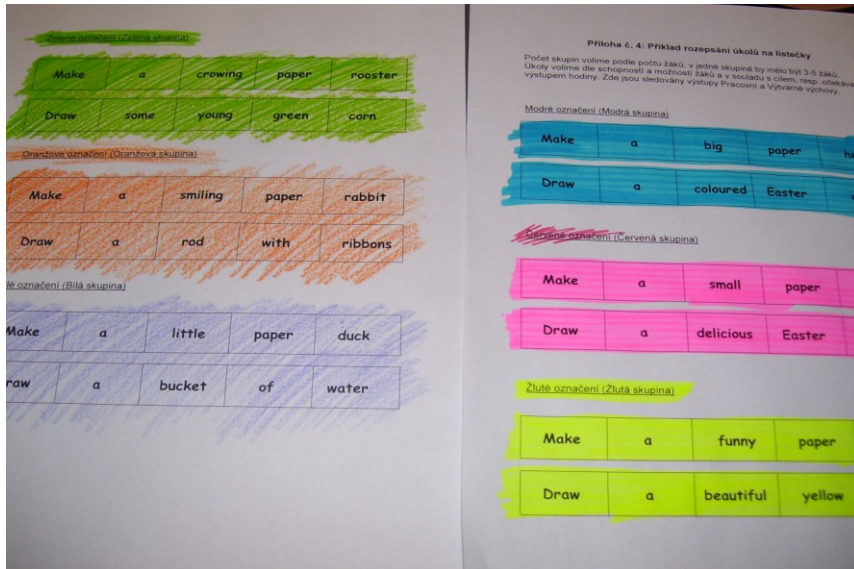 Zelené označení (Zelená skupina)
Make a crowing paper rooster
Draw some young green corn
Oranžové označení (Oranžová skupina)
Make a smiling paper rabbit
Draw a rod with ribbons
lé označení (Bílá skupina)
Make a little paper duck
raw a bucket of water
Příloha č. 4: Příklad rozepsání úkolů na lístečky
Počet skupin volíme podle počtu žáků; v jedné skupině by mělo být 3-5 žáků.
Úkoly volíme dle schopností a možností žáků a v souladu s cílem, resp. očekáva
výstupem hodiny. Zde jsou sledovány výstupy Pracovní a Výtvarné výchovy.
Modré označení (Modrá skupina)
Make a big paper he
Draw a coloured Easter
Červené označení (Červená skupina)
Make a small paper
Draw a delicious Easter
Žluté označení (Žlutá skupina)
Make a funny paper
Draw a beautiful yellow